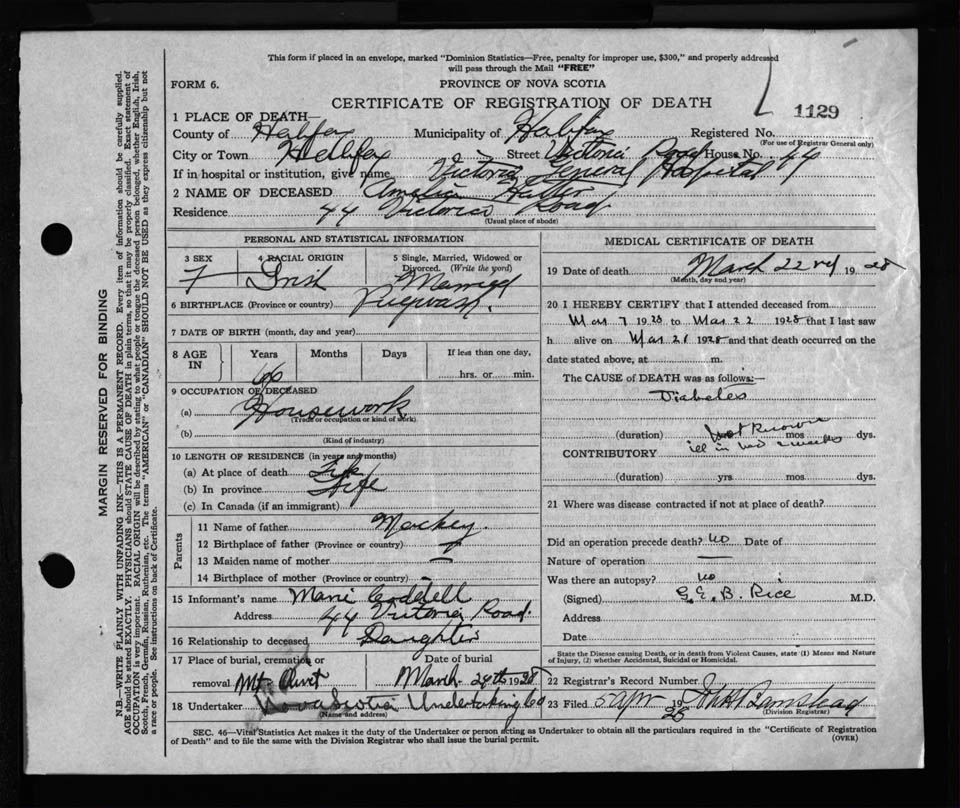 This form if placed in an envelope, marked "Dominion Statistics—Free, penalty for improper use, $300," and properly addressed
will pass through the Mail "FREE"
FORM 6.
PROVINCE OF NOVA SCOTIA
CERTIFICATE OF REGISTRATION OF DEATH
1129
1 PLACE OF DEATH—
County of Halifax Municipality of Halifax Registered No.
(For use of Registrar General only)
City or Town Hallifax Street Victoria Road House No. 44
If in hospital or institution, give name Victoria General Hospital
2 NAME OF DECEASED Amelia
Residence 44 Victoria Road
(Usual place of abode)
PERSONAL AND STATISTICAL INFORMATION
3 SEX F
4 RACIAL ORIGIN Irish
5 Single, Married, Widowed or Divorced. (Write the word) Married
6 BIRTHPLACE (Province or country) Pugwash
7 DATE OF BIRTH (month, day and year)
8 AGE IN Years 66 Months Days If less than one day, hrs. or min.
9 OCCUPATION OF DECEASED
(a) Housework
(Trade or occupation or kind of work)
(b)
(Kind of industry)
10 LENGTH OF RESIDENCE (in years and months)
(a) At place of death Life
(b) In province Life
(c) In Canada (if an immigrant)
Parents
11 Name of father Mackey
12 Birthplace of father (Province or country)
13 Maiden name of mother —
14 Birthplace of mother (Province or country)
15 Informant's name
Address 44 Victoria Road.
16 Relationship to deceased Daughter
17 Place of burial, cremation or removal Mt. Olivet
Date of burial March 24th 1928
18 Undertaker Nova Scotia Undertaking Co
(Name and address)
MEDICAL CERTIFICATE OF DEATH
19 Date of death March 22nd 1928
(Month, day and year)
20 I HEREBY CERTIFY that I attended deceased from
Mar 7 1928 to Mar 22 1928 that I last saw
h alive on Mar 21 1928 and that death occurred on the
date stated above, at m.
The CAUSE of DEATH was as follows:—
Diabetes
(duration) Not Known mos dys.
CONTRIBUTORY ill in 2 weeks
(duration) yrs mos dys.
21 Where was disease contracted if not at place of death?
Did an operation precede death? no Date of
Nature of operation —
Was there an autopsy? no
(Signed) G.E.B. Rice M.D.
Address
Date
State the Disease causing Death, or in death from Violent Causes, state (1) Means and Nature
of Injury, (2) whether Accidental, Suicidal or Homicidal.
22 Registrar's Record Number
23 Filed 5 Apr 1928
(Division Registrar)
SEC. 46—Vital Statistics Act makes it the duty of the Undertaker or person acting as Undertaker to obtain all the particulars required in the "Certificate of Registration
of Death" and to file the same with the Division Registrar who shall issue the burial permit.
(OVER)
MARGIN RESERVED FOR BINDING
N.B.—WRITE PLAINLY WITH UNFADING INK—THIS IS A PERMANENT RECORD. Every item of information should be carefully supplied.
AGE should be stated EXACTLY. PHYSICIANS should STATE CAUSE OF DEATH in plain terms, so that it may be properly classified. Exact statement of
OCCUPATION is very important. RACIAL ORIGIN will be described by stating to what people or tongue the deceased person belonged, whether English, Irish,
Scotch, French, German, Russian, Ruthenian, etc. The terms "AMERICAN" or "CANADIAN" SHOULD NOT BE USED as they express citizenship but not
a race or people. See instructions on back of Certificate.